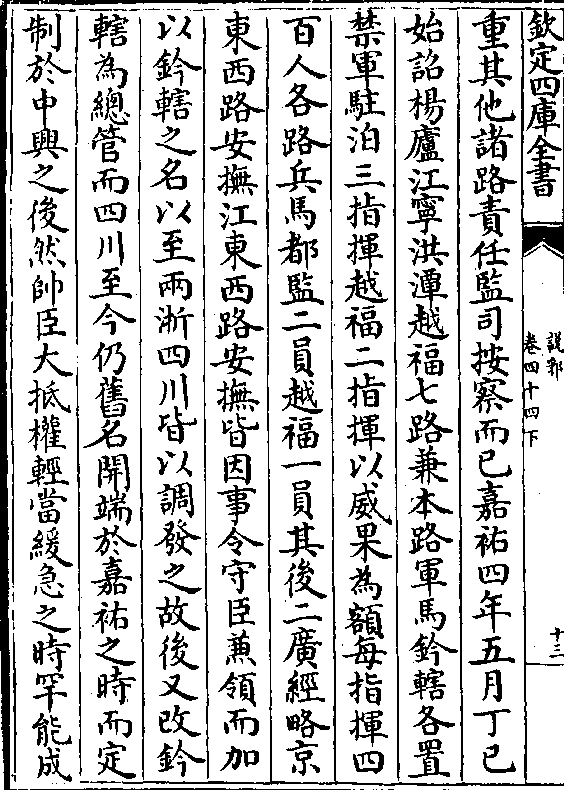 欽定四庫全書
說郛
卷四十四下
十三
重其他諸路責任監司按察而已嘉祐四年五月丁巳
始詔楊廬江寧洪潭越福七路兼本路軍馬鈐轄各置
禁軍駐泊三指揮越福二指揮以威果為額每指揮四
百人各路兵馬都監二員越福一員其後二廣經略京
東西路安撫江東西路安撫皆因事令守臣兼領而加
以鈐轄之名以至兩浙四川皆以調發之故後又改鈐
轄為總管而四川至今仍舊名開端於嘉祐之時而定
制於中興之後然帥臣大抵權輕當緩急之時罕能成